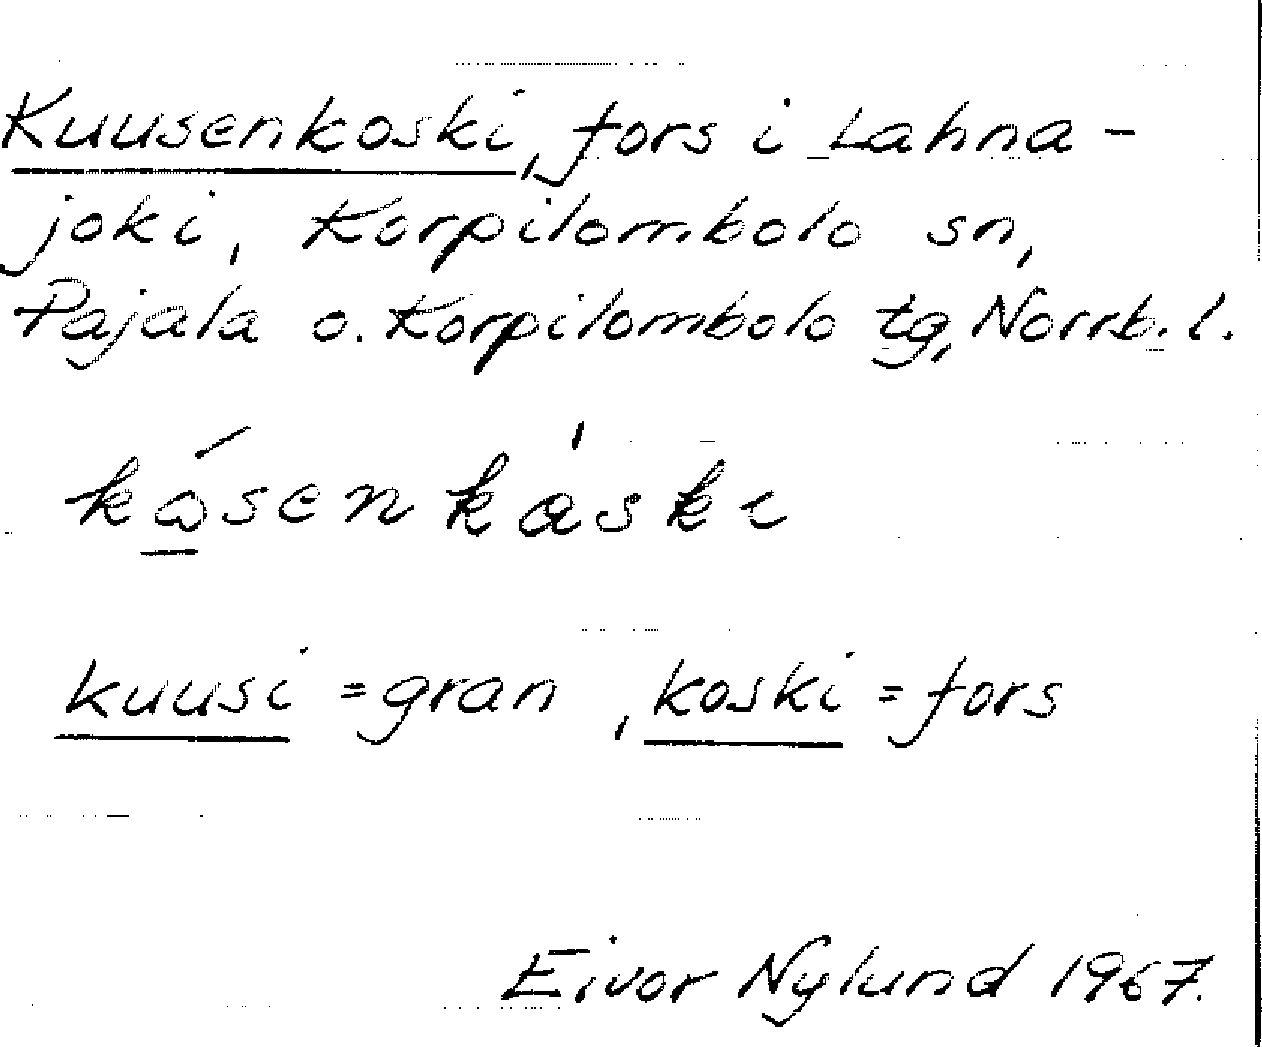 Kuusenkoski, fors i Lahna-
joki, Korpilombolo sn,
Pajala o. Korpilombolo tg, Norrb. l.
kuusi = gran, koski = fors
Eivor Nylund 1967.